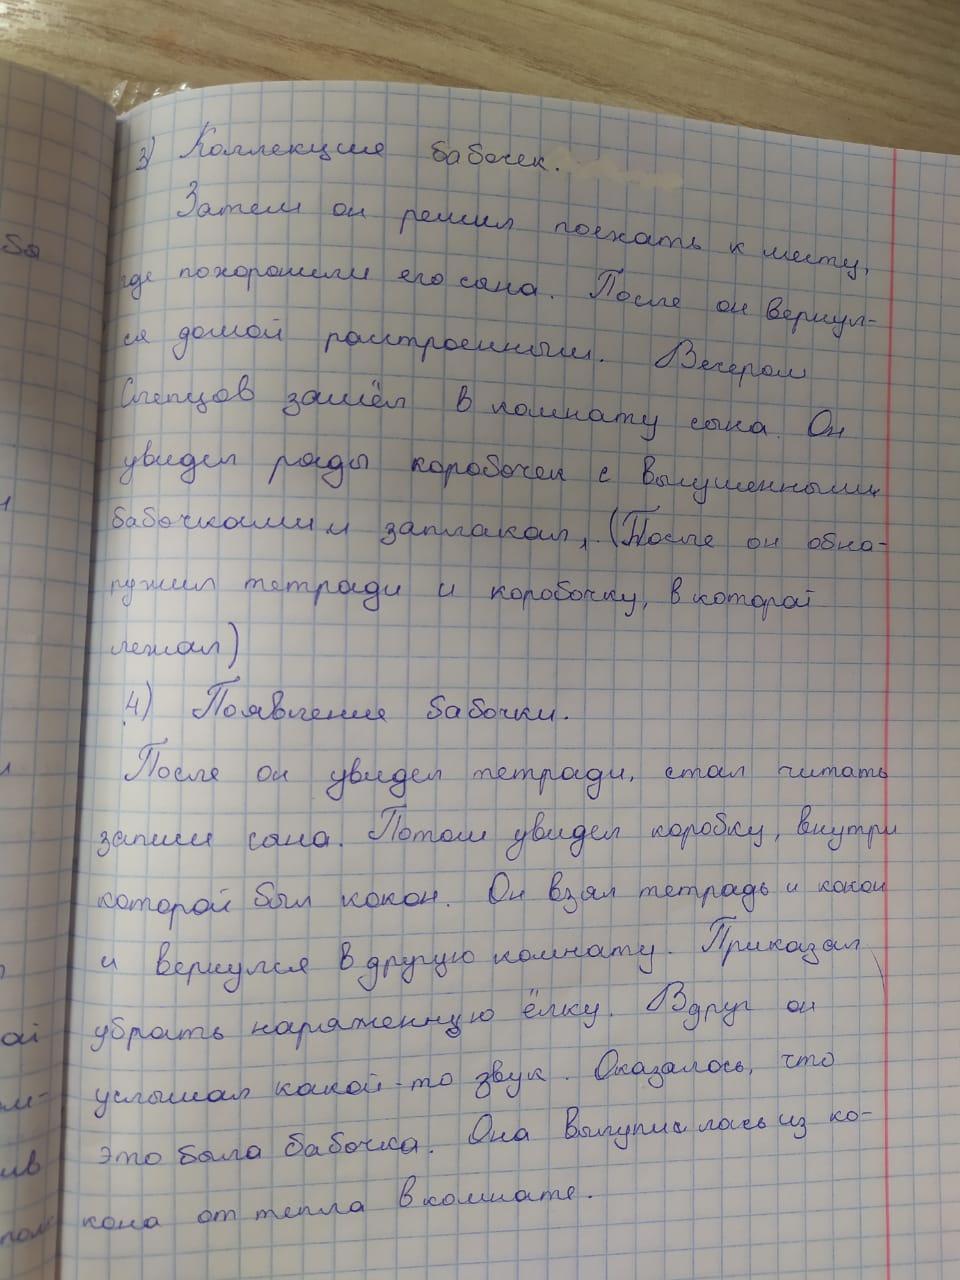 3) Коллекция бабочек.
Затем он решил поехать к месту,
где похоронили его сына. После он вернул-
ся домой расстроенным. Вечером
Слепцов зашёл в комнату сына. Он
увидел ряды коробочек с высушенными
бабочками и заплакал, (После он обна-
ружил тетради и коробочку, в которой
лежал)
4) Появление бабочки.
После он увидел тетради, стал читать
записи сына. Потом увидел коробку, внутри
которой был кокон. Он взял тетрадь и кокон
и вернулся в другую комнату. Приказал
убрать наряженную ёлку. Вдруг он
услышал какой-то звук. Оказалось, что
это была бабочка. Она вылупилась из ко-
кона от тепла в комнате.